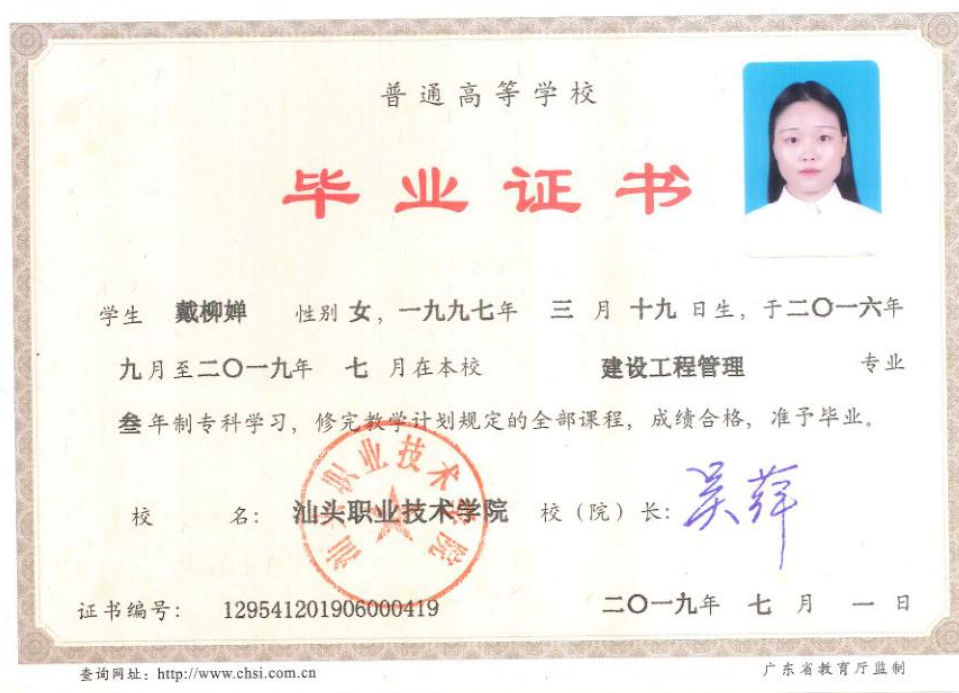 普通高等学校
毕业证书
学生 戴柳婵 性别 女，一九九七年 三 月 十九 日生，于二〇一六年
九月至二〇一九年 七 月在本校 建设工程管理 专业
叁年制专科学习，修完教学计划规定的全部课程，成绩合格，准予毕业。
汕头职业技术学院
校 名： 汕头职业技术学院 校（院）长：吴萍
证书编号： 129541201906000419 二〇一九年 七 月 一 日
查询网址：http://www.chsi.com.cn 广东省教育厅监制